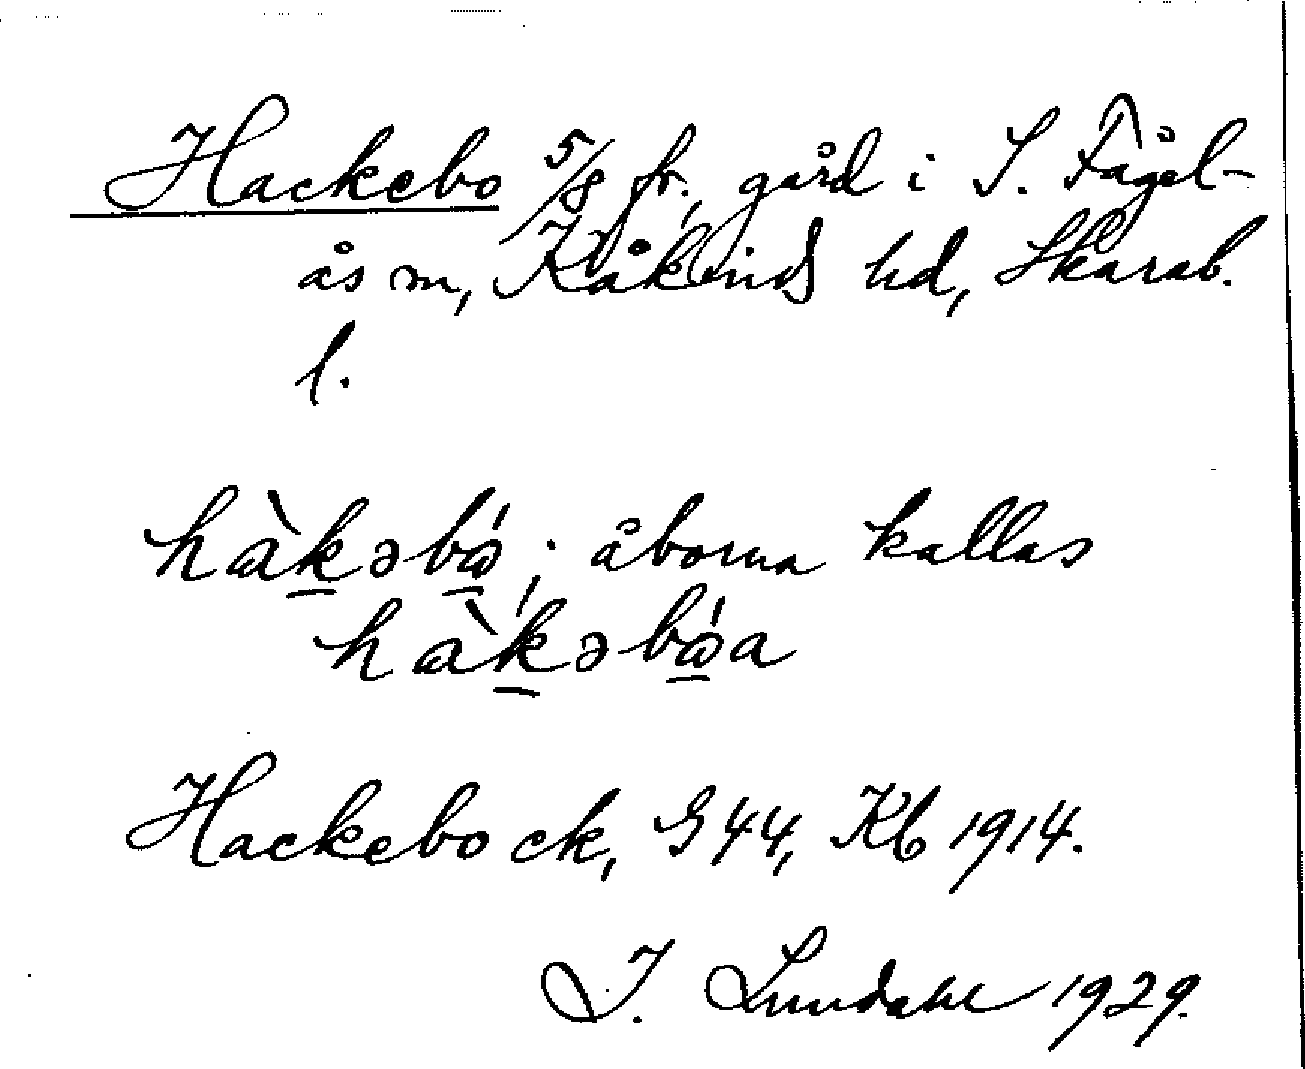 Hackebo 5/8 fr., gård i S. Fågel-
ås sn, Kåkinds hd, Skarab.
l.
hàkəbó; åborna kallas
hàkəbóa
Hackebo ek, G 44, Kb 1914.
I. Lundahl 1929.